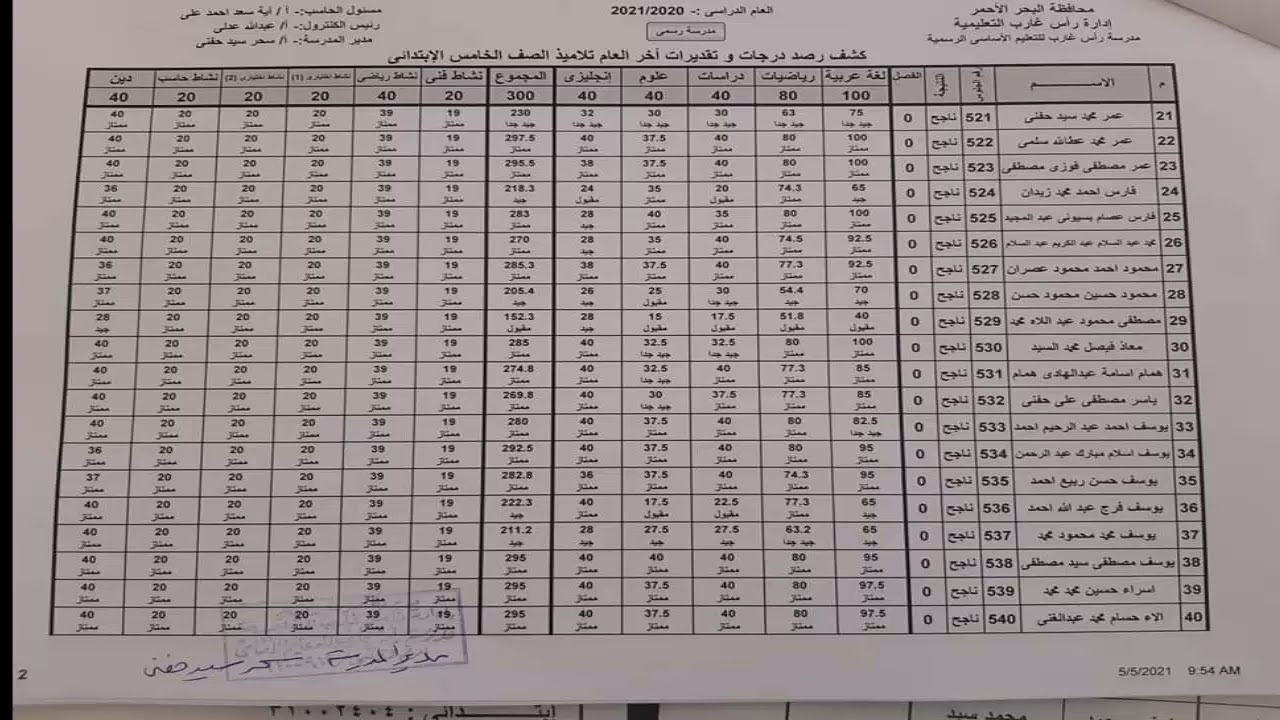 محافظة البحر الأحمر
إدارة رأس غارب التعليمية
مدرسة رأس غارب للتعليم الأساسى الرسمية
العام الدراسى :- 2021/2020
مدرسة رسمى
مسئول الحاسب:- أ / آية سعد احمد على
رئيس الكنترول:- أ/ عبدالله عدلى
مدير المدرسة:- أ/ سحر سيد حفنى
كشف رصد درجات و تقديرات أخر العام تلاميذ الصف الخامس الإبتدائى
م الاســـم رقم الجلوس النتيجة الفصل لغة عربية رياضيات دراسات علوم إنجليزى المجموع نشاط فنى نشاط رياضى نشاط اختيارى (1) نشاط اختيارى (2) نشاط حاسب دين
100 80 40 40 40 300 20 40 20 20 20 40
21 عمر محمد سيد حفنى 521 ناجح 0 75 63 30 30 32 230 19 39 20 20 20 40
جيد جدا جيد جدا جيد جدا جيد جدا جيد جدا جيد جدا ممتاز ممتاز ممتاز ممتاز ممتاز ممتاز
22 عمر محمد عطالله سلمى 522 ناجح 0 100 80 40 37.5 40 297.5 19 39 20 20 20 40
ممتاز ممتاز ممتاز ممتاز ممتاز ممتاز ممتاز ممتاز ممتاز ممتاز ممتاز ممتاز
23 عمر مصطفى فوزى مصطفى 523 ناجح 0 100 80 40 37.5 38 295.5 19 39 20 20 20 40
ممتاز ممتاز ممتاز ممتاز ممتاز ممتاز ممتاز ممتاز ممتاز ممتاز ممتاز ممتاز
24 فارس احمد محمد زيدان 524 ناجح 0 65 74.3 20 35 24 218.3 19 39 20 20 20 36
جيد ممتاز مقبول ممتاز مقبول جيد ممتاز ممتاز ممتاز ممتاز ممتاز ممتاز
25 فارس عصام بسيونى عبد المجيد 525 ناجح 0 100 80 35 40 28 283 19 39 20 20 20 40
ممتاز ممتاز ممتاز ممتاز جيد ممتاز ممتاز ممتاز ممتاز ممتاز ممتاز ممتاز
26 محمد عبد السلام عبد الكريم عبد السلام 526 ناجح 0 92.5 74.5 40 35 28 270 19 39 20 20 20 40
ممتاز ممتاز ممتاز ممتاز جيد ممتاز ممتاز ممتاز ممتاز ممتاز ممتاز ممتاز
27 محمود احمد محمود عصران 527 ناجح 0 92.5 77.3 40 37.5 38 285.3 19 39 20 20 20 36
ممتاز ممتاز ممتاز ممتاز ممتاز ممتاز ممتاز ممتاز ممتاز ممتاز ممتاز ممتاز
28 محمود حسين محمود حسن 528 ناجح 0 70 54.4 30 25 26 205.4 19 39 20 20 20 37
جيد جيد جيد جدا مقبول جيد جيد ممتاز ممتاز ممتاز ممتاز ممتاز ممتاز
29 مصطفى محمود عبد اللاه محمد 529 ناجح 0 40 51.8 17.5 15 28 152.3 19 39 20 20 20 28
مقبول مقبول مقبول مقبول جيد مقبول ممتاز ممتاز ممتاز ممتاز ممتاز جيد
30 معاذ فيصل محمد السيد 530 ناجح 0 100 80 32.5 32.5 40 285 19 39 20 20 20 40
ممتاز ممتاز جيد جدا جيد جدا ممتاز ممتاز ممتاز ممتاز ممتاز ممتاز ممتاز ممتاز
31 همام اسامة عبدالهادى همام 531 ناجح 0 85 77.3 40 32.5 40 274.8 19 39 20 20 20 40
ممتاز ممتاز ممتاز جيد جدا ممتاز ممتاز ممتاز ممتاز ممتاز ممتاز ممتاز ممتاز
32 ياسر مصطفى على حفنى 532 ناجح 0 85 77.3 37.5 30 40 269.8 19 39 20 20 20 40
ممتاز ممتاز ممتاز جيد جدا ممتاز ممتاز ممتاز ممتاز ممتاز ممتاز ممتاز ممتاز
33 يوسف احمد عبد الرحيم احمد 533 ناجح 0 82.5 80 40 37.5 40 280 19 39 20 20 20 40
جيد جدا ممتاز ممتاز ممتاز ممتاز ممتاز ممتاز ممتاز ممتاز ممتاز ممتاز ممتاز
34 يوسف اسلام مبارك عبد الرحمن 534 ناجح 0 95 80 40 37.5 40 292.5 19 39 20 20 20 36
ممتاز ممتاز ممتاز ممتاز ممتاز ممتاز ممتاز ممتاز ممتاز ممتاز ممتاز ممتاز
35 يوسف حسن ربيع احمد 535 ناجح 0 95 74.3 40 37.5 36 282.8 19 39 20 20 20 37
ممتاز ممتاز ممتاز ممتاز ممتاز ممتاز ممتاز ممتاز ممتاز ممتاز ممتاز ممتاز
36 يوسف فرج عبد الله احمد 536 ناجح 0 65 77.3 22.5 17.5 40 222.3 19 39 20 20 20 40
جيد ممتاز مقبول مقبول ممتاز جيد ممتاز ممتاز ممتاز ممتاز ممتاز ممتاز
37 يوسف محمد محمود محمد 537 ناجح 0 65 63.2 27.5 27.5 28 211.2 19 39 20 20 20 40
جيد جيد جدا جيد جيد جيد جيد ممتاز ممتاز ممتاز ممتاز ممتاز ممتاز
38 يوسف مصطفى سيد مصطفى 538 ناجح 0 95 80 40 40 40 295 19 39 20 20 20 40
ممتاز ممتاز ممتاز ممتاز ممتاز ممتاز ممتاز ممتاز ممتاز ممتاز ممتاز ممتاز
39 اسراء حسين محمد محمد 539 ناجح 0 97.5 80 40 37.5 40 295 19 39 20 20 20 40
ممتاز ممتاز ممتاز ممتاز ممتاز ممتاز ممتاز ممتاز ممتاز ممتاز ممتاز ممتاز
40 الاء حسام محمد عبدالغنى 540 ناجح 0 97.5 80 40 37.5 40 295 19 39 20 20 20 40
ممتاز ممتاز ممتاز ممتاز ممتاز ممتاز ممتاز ممتاز ممتاز ممتاز ممتاز ممتاز
مدير المدرسة سحر سيد حفنى
5/5/2021 9:54 AM
2
محمد سيد
إبتدائى : ٣١٠٠٢٤٠٤